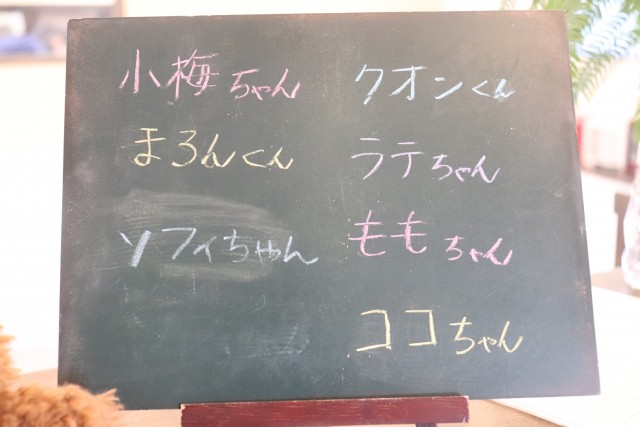 小梅ちゃん
まろんくん
ソフィちゃん
クオンくん
ラテちゃん
ももちゃん
ココちゃん